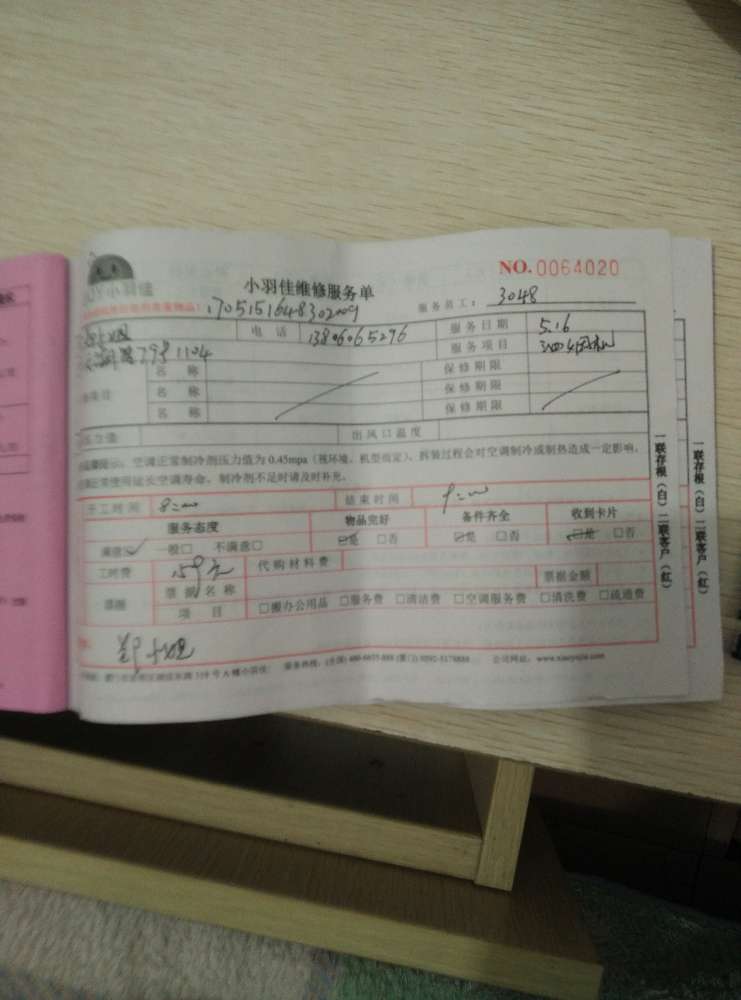 小羽佳
小羽佳维修服务单
NO.0064020
服务员工: 3048
170515164830209
电话 13806065296 服务日期 5.16
服务项目
791104
名称 保修期限
名称 保修期限
项目 名称 保修期限
压力值 出风口温度
提示：空调正常制冷剂压力值为0.45mpa（视环境、机型而定），拆装过程会对空调制冷或制热造成一定影响，
正常使用延长空调寿命，制冷剂不足时请及时补充。
开工时间 8:00 结束时间 9:00
服务态度 物品完好 备件齐全 收到卡片
满意☑ 一般□ 不满意□ ☑是 □否 ☑是 □否 ☑是 □否
工时费 159元 代购材料费
票据 票据名称 票据金额
项目 □搬办公用品 □服务费 □清洁费 □空调服务费 □清洗费 □疏通费
郑小姐
服务热线：(全国) 400-6655-888 (厦门) 0592-5178888 公司网址：www.xiaoyujia.com
一联存根（白）二联客户（红）
一联存根（白）二联客户（红）